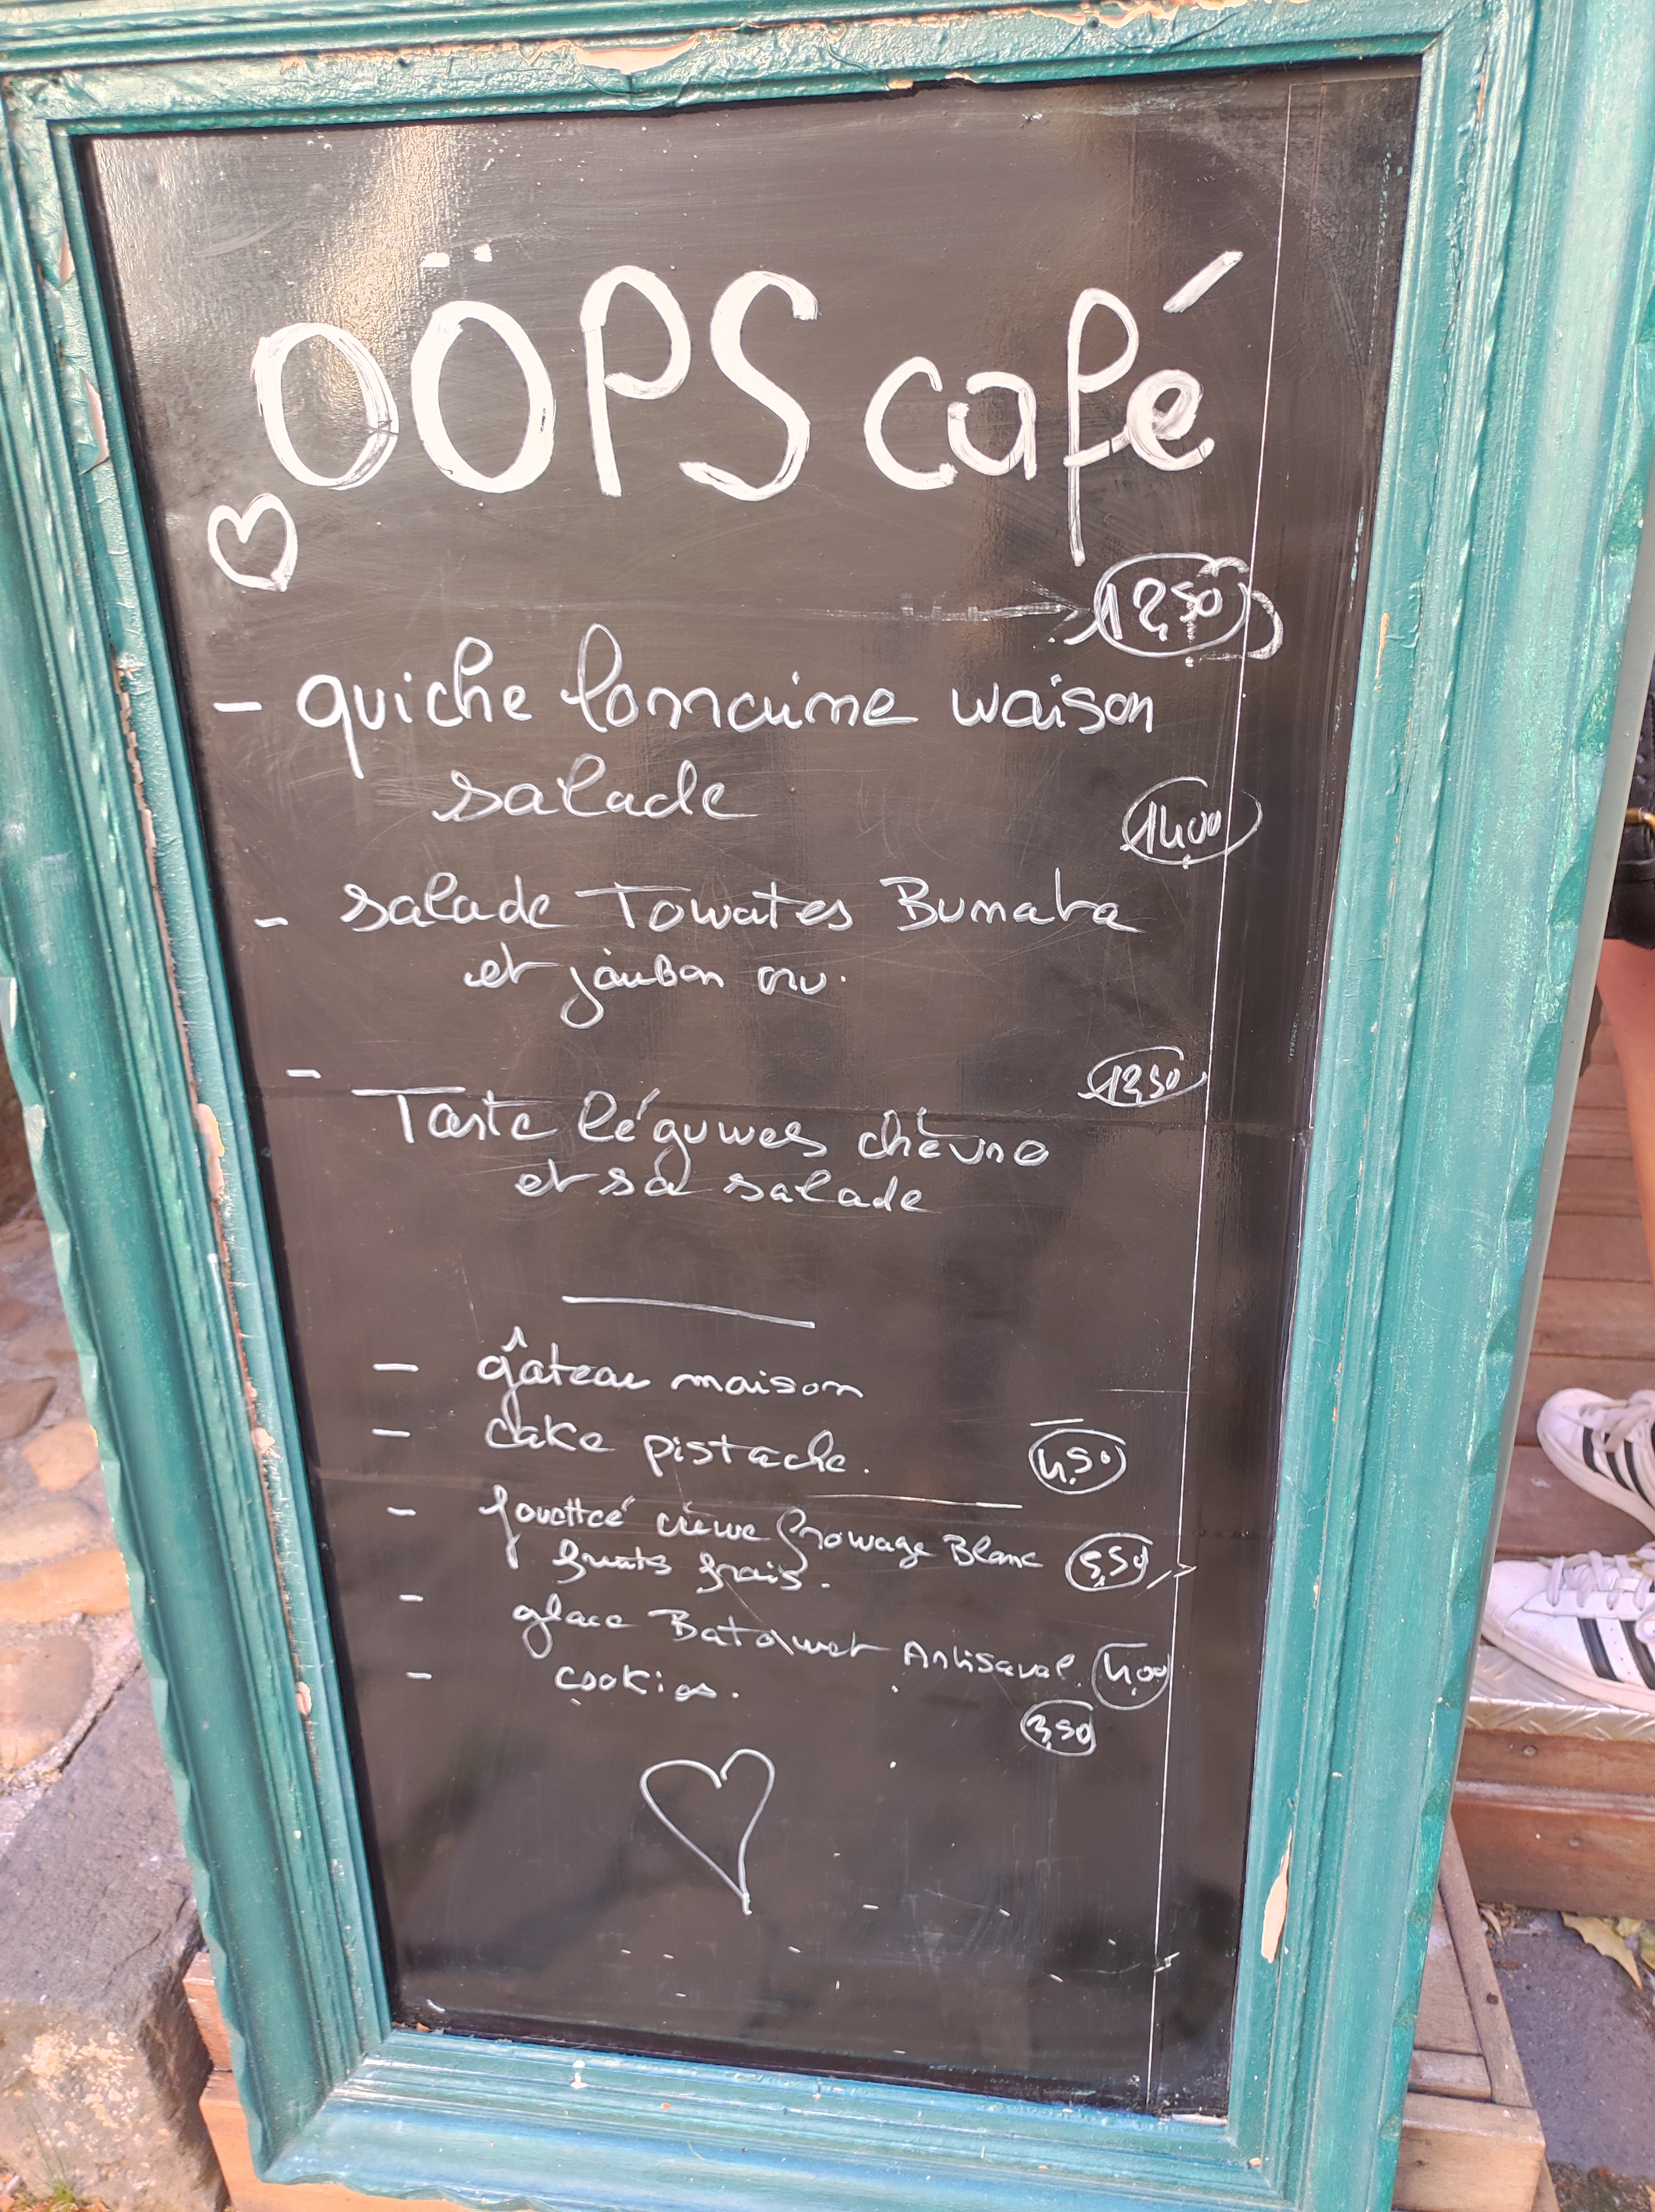 OÖPS café
12,50
- quiche lorraine maison
salade
14,00
- salade Tomates Burrata
et jambon cru.
- 12,50
Tarte légumes chèvre
et sa salade
- gâteau maison
- cake pistache. 4,50
- fouetteé crème fromage Blanc 5,50
fruits frais.
- glace Batonnet Artisanal. 4,00
- cookies.
3,50